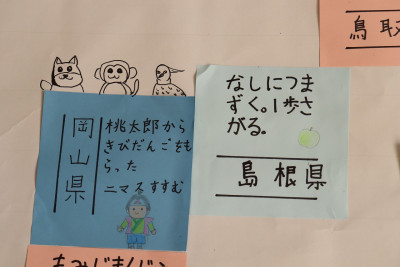 鳥取
なしにつま
ずく。1歩さ
がる。
島根県
岡山県
桃太郎から
きびだんごをも
らった
二マスすすむ
もみじまんじゅ